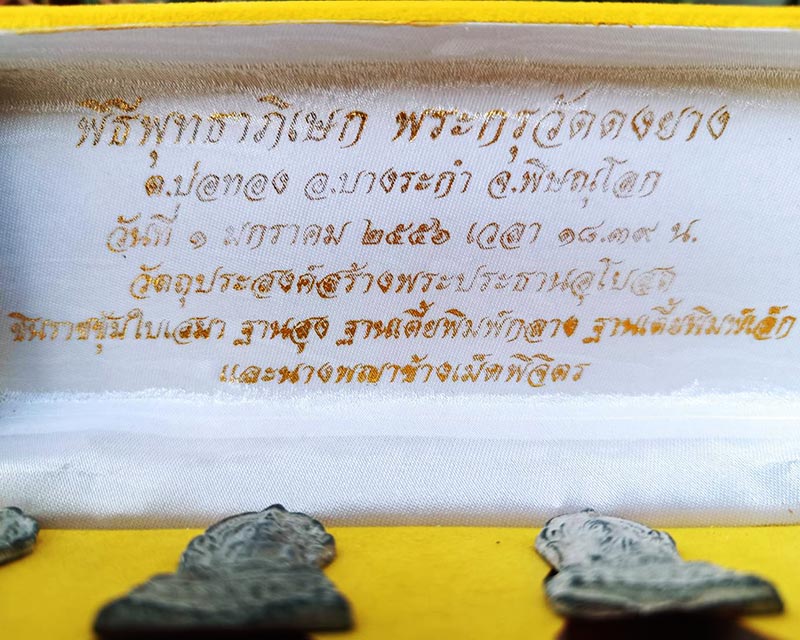 พิธีพุทธาภิเษก พระกรุวัดดงยาง
ต.บ่อทอง อ.บางระกำ จ.พิษณุโลก
วันที่ ๑ มกราคม ๒๕๕๖ เวลา ๑๘.๓๙ น.
วัตถุประสงค์สร้างพระประธานอุโบสถ
ชินราชซุ้มใบเสมา ฐานสูง ฐานเตี้ยพิมพ์กลาง ฐานเตี้ยพิมพ์เล็ก
และนางพญาข้างเม็ดพิจิตร